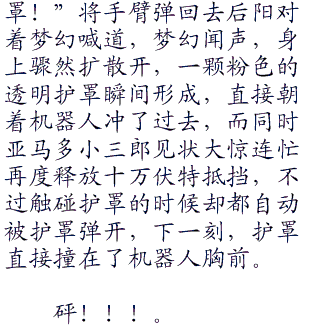 罩！”将手臂弹回去后阳对
着梦幻喊道，梦幻闻声，身
上骤然扩散开，一颗粉色的
透明护罩瞬间形成，直接朝
着机器人冲了过去，而同时
亚马多小三郎见状大惊连忙
再度释放十万伏特抵挡，不
过触碰护罩的时候却都自动
被护罩弹开，下一刻，护罩
直接撞在了机器人胸前。
砰！！！。